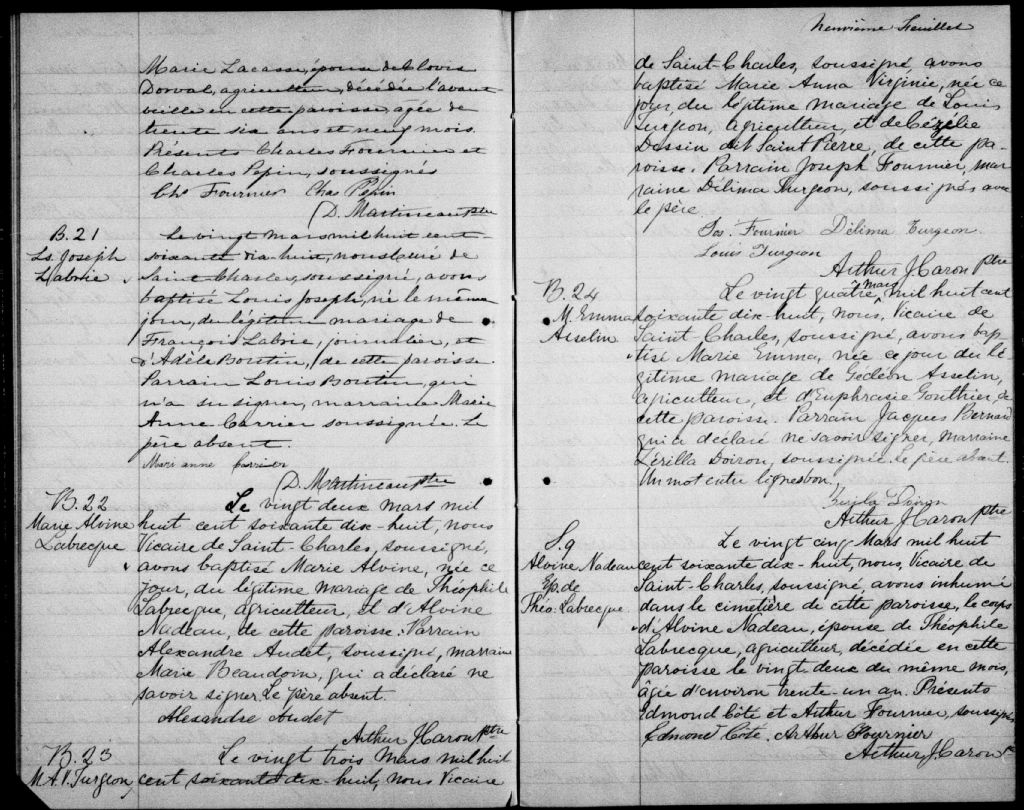 Marie Lacasse, épouse de Clovis
Dorval, agriculteur, décédée l'avant
veille en cette paroisse, agée de
trente six ans et neuf mois.
Présents Charles Fournier et
Charles Pepin, soussignés
Chs Fournier Chas Pepin
D. Martineau ptre
B. 21
Ls. Joseph
Labrie
Le vingt mars mil huit cent
soixante dix-huit, nous curé de
Saint-Charles, soussigné, avons
baptisé Louis Joseph, né le même
jour, du légitime mariage de
François Labrie, journalier, et
d'Adèle Boutin, de cette paroisse.
Parrain Louis Boutin, qui
n'a su signer, marraine Marie
Anne Carrier soussignée. Le
père absent.
Mari anne carrier
D. Martineau ptre
B. 22
Marie Alvine
Labrecque
Le vingt deux mars mil
huit cent soixante dix-huit, nous
Vicaire de Saint-Charles, soussigné,
avons baptisé Marie Alvine, née ce
jour, du légitime mariage de Théophile
Labrecque, agriculteur, et d'Alvine
Nadeau, de cette paroisse. Parrain
Alexandre Audet, soussigné, marraine
Marie Beaudoin, qui a déclaré ne
savoir signer. Le père absent.
Alexandre Audet
Arthur J. Caron ptre
B. 23
M.A.V. Turgeon,
Le vingt trois Mars mil huit
cent soixante dix-huit, nous Vicaire
Neuvième Feuillet
de Saint-Charles, soussigné avons
baptisé Marie Anna Virginie, née ce
jour, du légtime mariage de Louis
Turgeon, agriculteur, et de Cézélie
Dossin dit Saint Pierre, de cette pa-
roisse. Parrain Joseph Fournier, mar
raine Délima Turgeon, soussignés avec
le père.
Jos. Fournier Délima Turgeon
Louis Turgeon
Arthur J. Caron ptre
B. 24
M. Emma
Asselin
Le vingt quatre mars mil huit cent
soixante dix-huit, nous, Vicaire de
Saint-Charles, soussigné, avons bap
tisé Marie Emma, née ce jour du lé
gitime mariage de Gédéon Asselin,
agriculteur, et d'Euphrasie Gonthier, de
cette paroisse. Parrain Jacques Bernard
qui a déclaré ne savoir signer, Marraine
Zérilla Doiron, soussignée. Le père absent.
Un mot entre lignes bon.
Doiron
Arthur J. Caron ptre
S. 9
Alvine Nadeau
Ep. de
Théo. Labrecque
Le vingt cinq Mars mil huit
cent soixante dix-huit, nous, Vicaire de
Saint-Charles, soussigné avons inhumé
dans le cimetière de cette paroisse, le corps
d'Alvine Nadeau, épouse de Théophile
Labrecque, agriculteur, décédée en cette
paroisse le vingt deux du même mois,
âgée d'environ trente-un an. Présents
Edmond Côté et Arthur Fournier, soussignés
Edmond Cote. Arthur Fournier
Arthur J. Caron